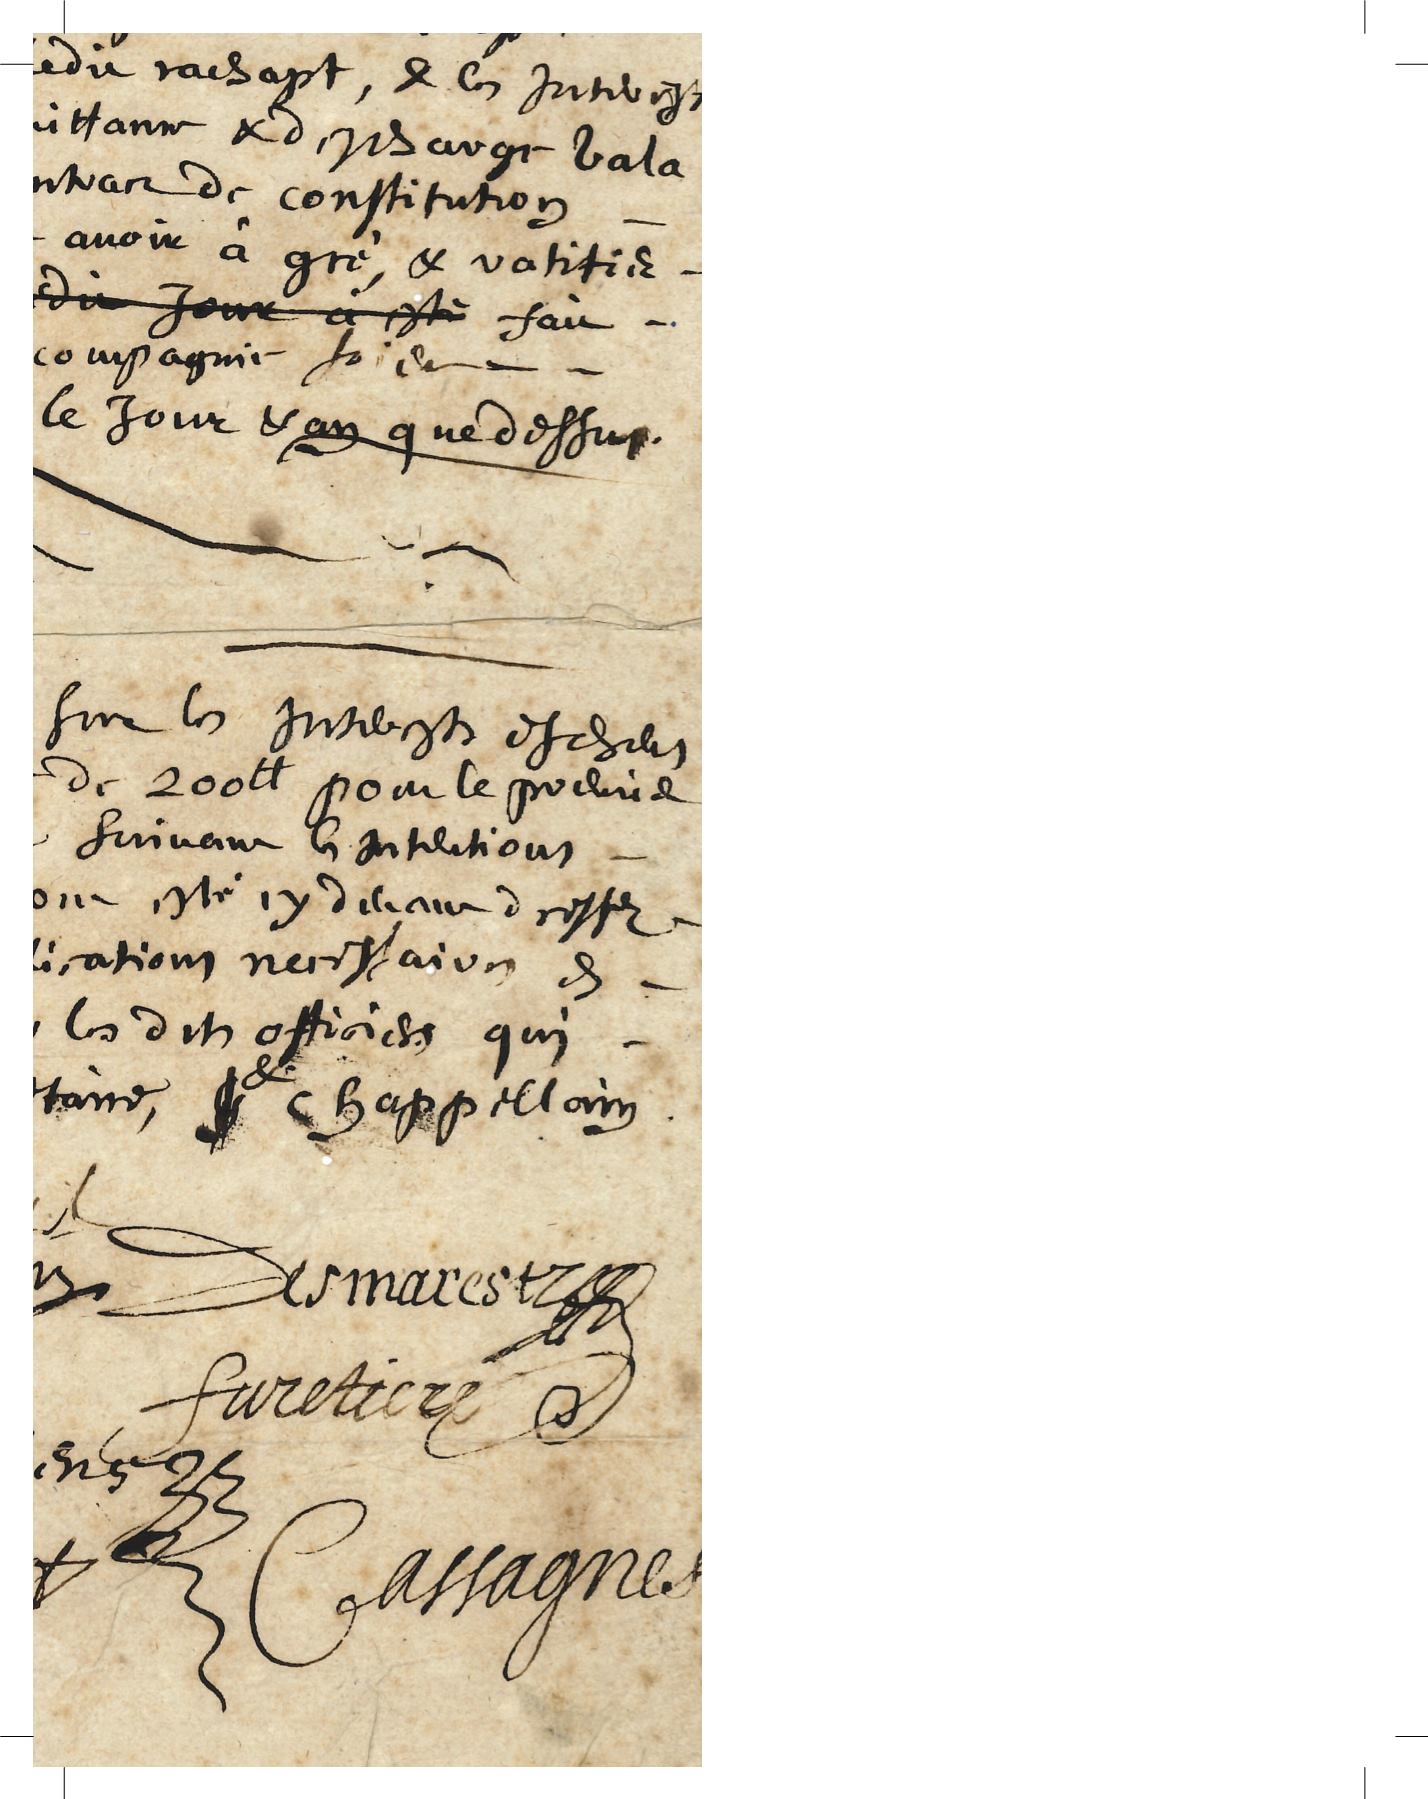 ledit rachapt, & les Interests
uittance & descharge vala
ntract de constitution
avoir à gré, & ratifier
edit Jour a esté fait
compagnie soient
le Jour & an que dessus.
sur les Interests escheus
de 200tt pour le premier
suivant les Intentions
ont esté cy devant dressez
lications necessaires &
les dits officiers qui
ttaire, & chappellain
Desmarestz
furetiere
ens
Cassagnes